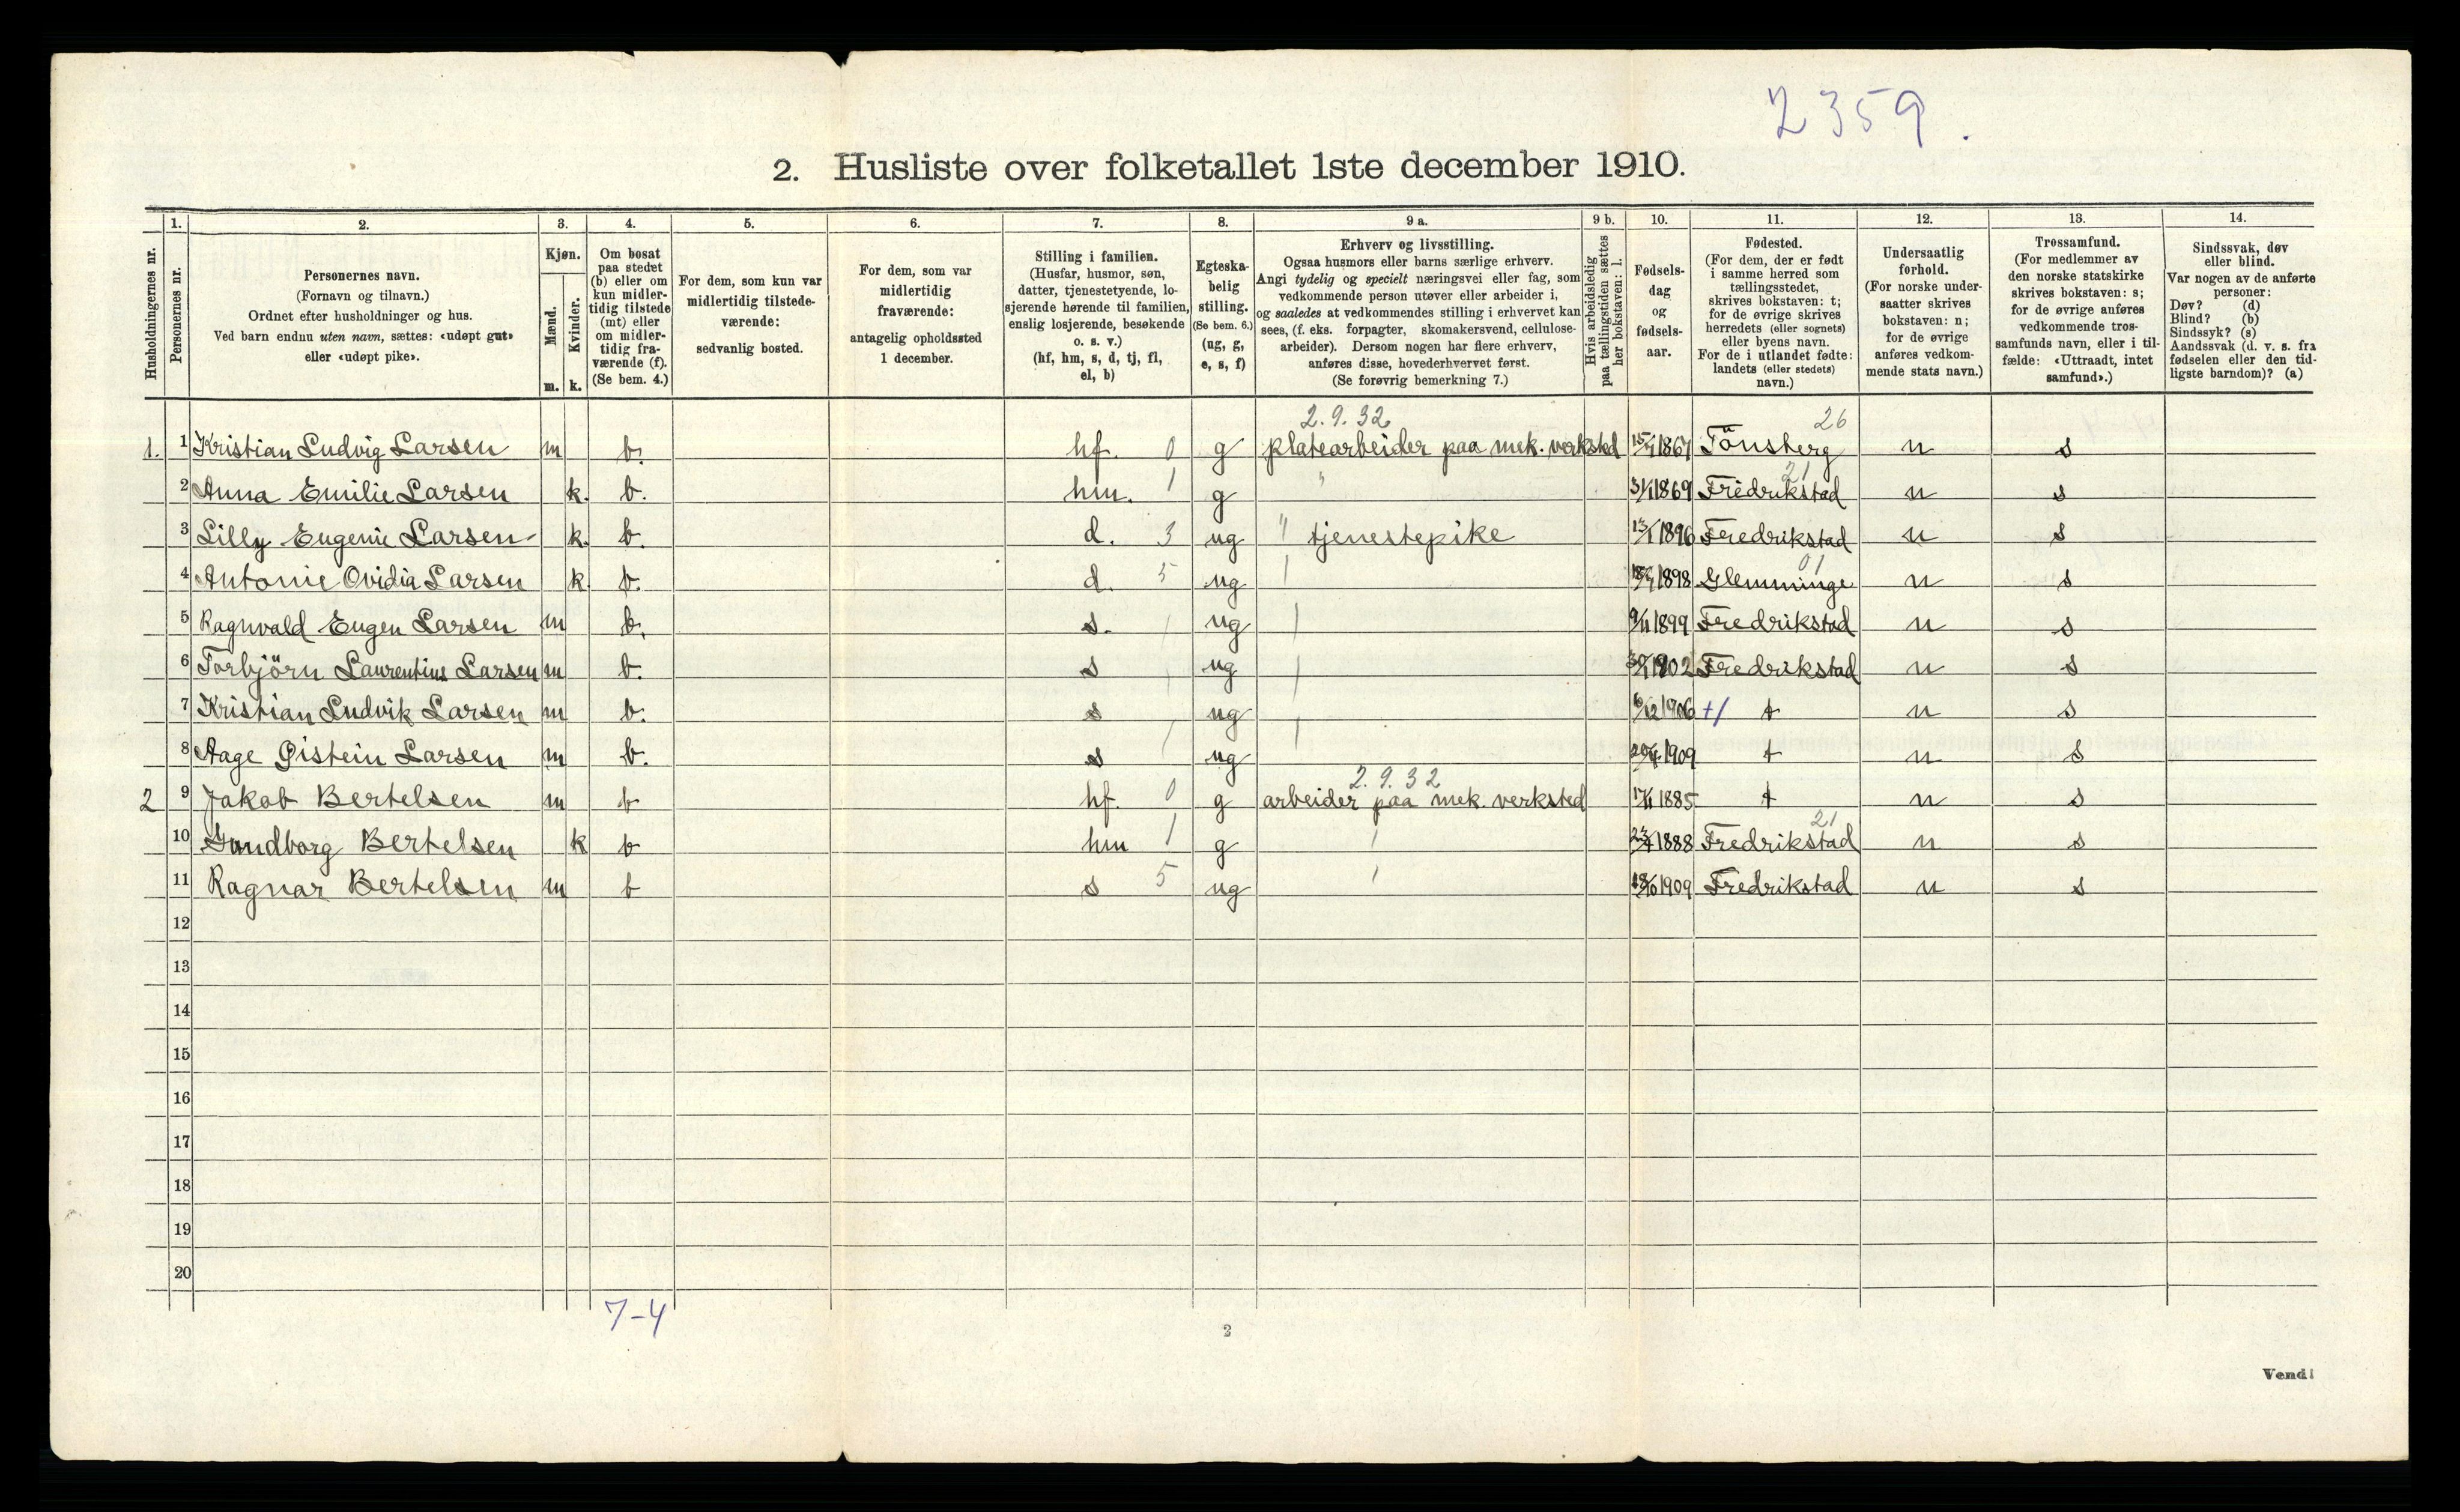 2359.
2. Husliste over folketallet 1ste december 1910.
1. 2. 3. 4. 5. 6. 7. 8. 9 a. 9 b. 10. 11. 12. 13. 14.
Husholdningernes nr.
Personernes nr.
Personernes navn.
(Fornavn og tilnavn.)
Ordnet efter husholdninger og hus.
Ved barn endnu uten navn, sættes: «udøpt gut»
eller «udøpt pike».
Kjøn.
Mænd.
Kvinder.
m. k.
Om bosat
paa stedet
(b) eller om
kun midler-
tidig tilstede
(mt) eller
om midler-
tidig fra-
værende (f).
(Se bem. 4.)
For dem, som kun var
midlertidig tilstede-
værende:
sedvanlig bosted.
For dem, som var
midlertidig
fraværende:
antagelig opholdssted
1 december.
Stilling i familien.
(Husfar, husmor, søn,
datter, tjenestetyende, lo-
sjerende hørende til familien,
enslig losjerende, besøkende
o. s. v.)
(hf, hm, s, d, tj, fl,
el, b)
Egteska-
belig
stilling.
(Se bem. 6.)
(ug, g,
e, s, f)
Erhverv og livsstilling.
Ogsaa husmors eller barns særlige erhverv.
Angi tydelig og specielt næringsvei eller fag, som
vedkommende person utøver eller arbeider i,
og saaledes at vedkommendes stilling i erhvervet kan
sees, (f. eks. forpagter, skomakersvend, cellulose-
arbeider). Dersom nogen har flere erhverv,
anføres disse, hovederhvervet først.
(Se forøvrig bemerkning 7.)
Hvis arbeidsledig
paa tællingstiden sættes
her bokstaven: l.
Fødsels-
dag
og
fødsels-
aar.
Fødested.
(For dem, der er født
i samme herred som
tællingsstedet,
skrives bokstaven: t;
for de øvrige skrives
herredets (eller sognets)
eller byens navn.
For de i utlandet fødte:
landets (eller stedets)
navn.)
Undersaatlig
forhold.
(For norske under-
saatter skrives
bokstaven: n;
for de øvrige
anføres vedkom-
mende stats navn.)
Trossamfund.
(For medlemmer av
den norske statskirke
skrives bokstaven: s;
for de øvrige anføres
vedkommende tros-
samfunds navn, eller i til-
fælde: «Uttraadt, intet
samfund».)
Sindssvak, døv
eller blind.
Var nogen av de anførte
personer:
Døv? (d)
Blind? (b)
Sindssyk? (s)
Aandssvak (d. v. s. fra
fødselen eller den tid-
ligste barndom)? (a)
2.9.32 26
1. 1 Kristian Ludvig Larsen m b. hf. 0 g platearbeider paa mek. verksted 1867 Tönsberg n s
21
2 Anna Emilie Larsen k. b. hm. 1 g " 1869 Fredrikstad n s
3 Lilly Eugenie Larsen k. b. d. 3 ug " tjenestepike 1896 Fredrikstad n s
01
4 Antonie Ovidia Larsen k b. d. 5 ug 1898 Glemminge n s
5 Ragnvald Eugen Larsen m b. s. ug 9/11 1899 Fredrikstad n s
6 Torbjörn Laurentius Larsen m b. s ug 1902 Fredrikstad n s
7 Kristian Ludvik Larsen m b. s ug 6/12 1906 t n s
8 Aage Øistein Larsen m b. s ug 1909 t n s
2.9.32
2 9 Jakob Bertelsen m b hf. 0 g arbeider paa mek. verksted 1885 t n s
21
10 Gundborg Bertelsen k b hm 1 g 1888 Fredrikstad n s
11 Ragnar Bertelsen m b s 5 ug 1909 Fredrikstad n s
12
13
14
15
16
17
18
19
20
7-4
2
Vend!